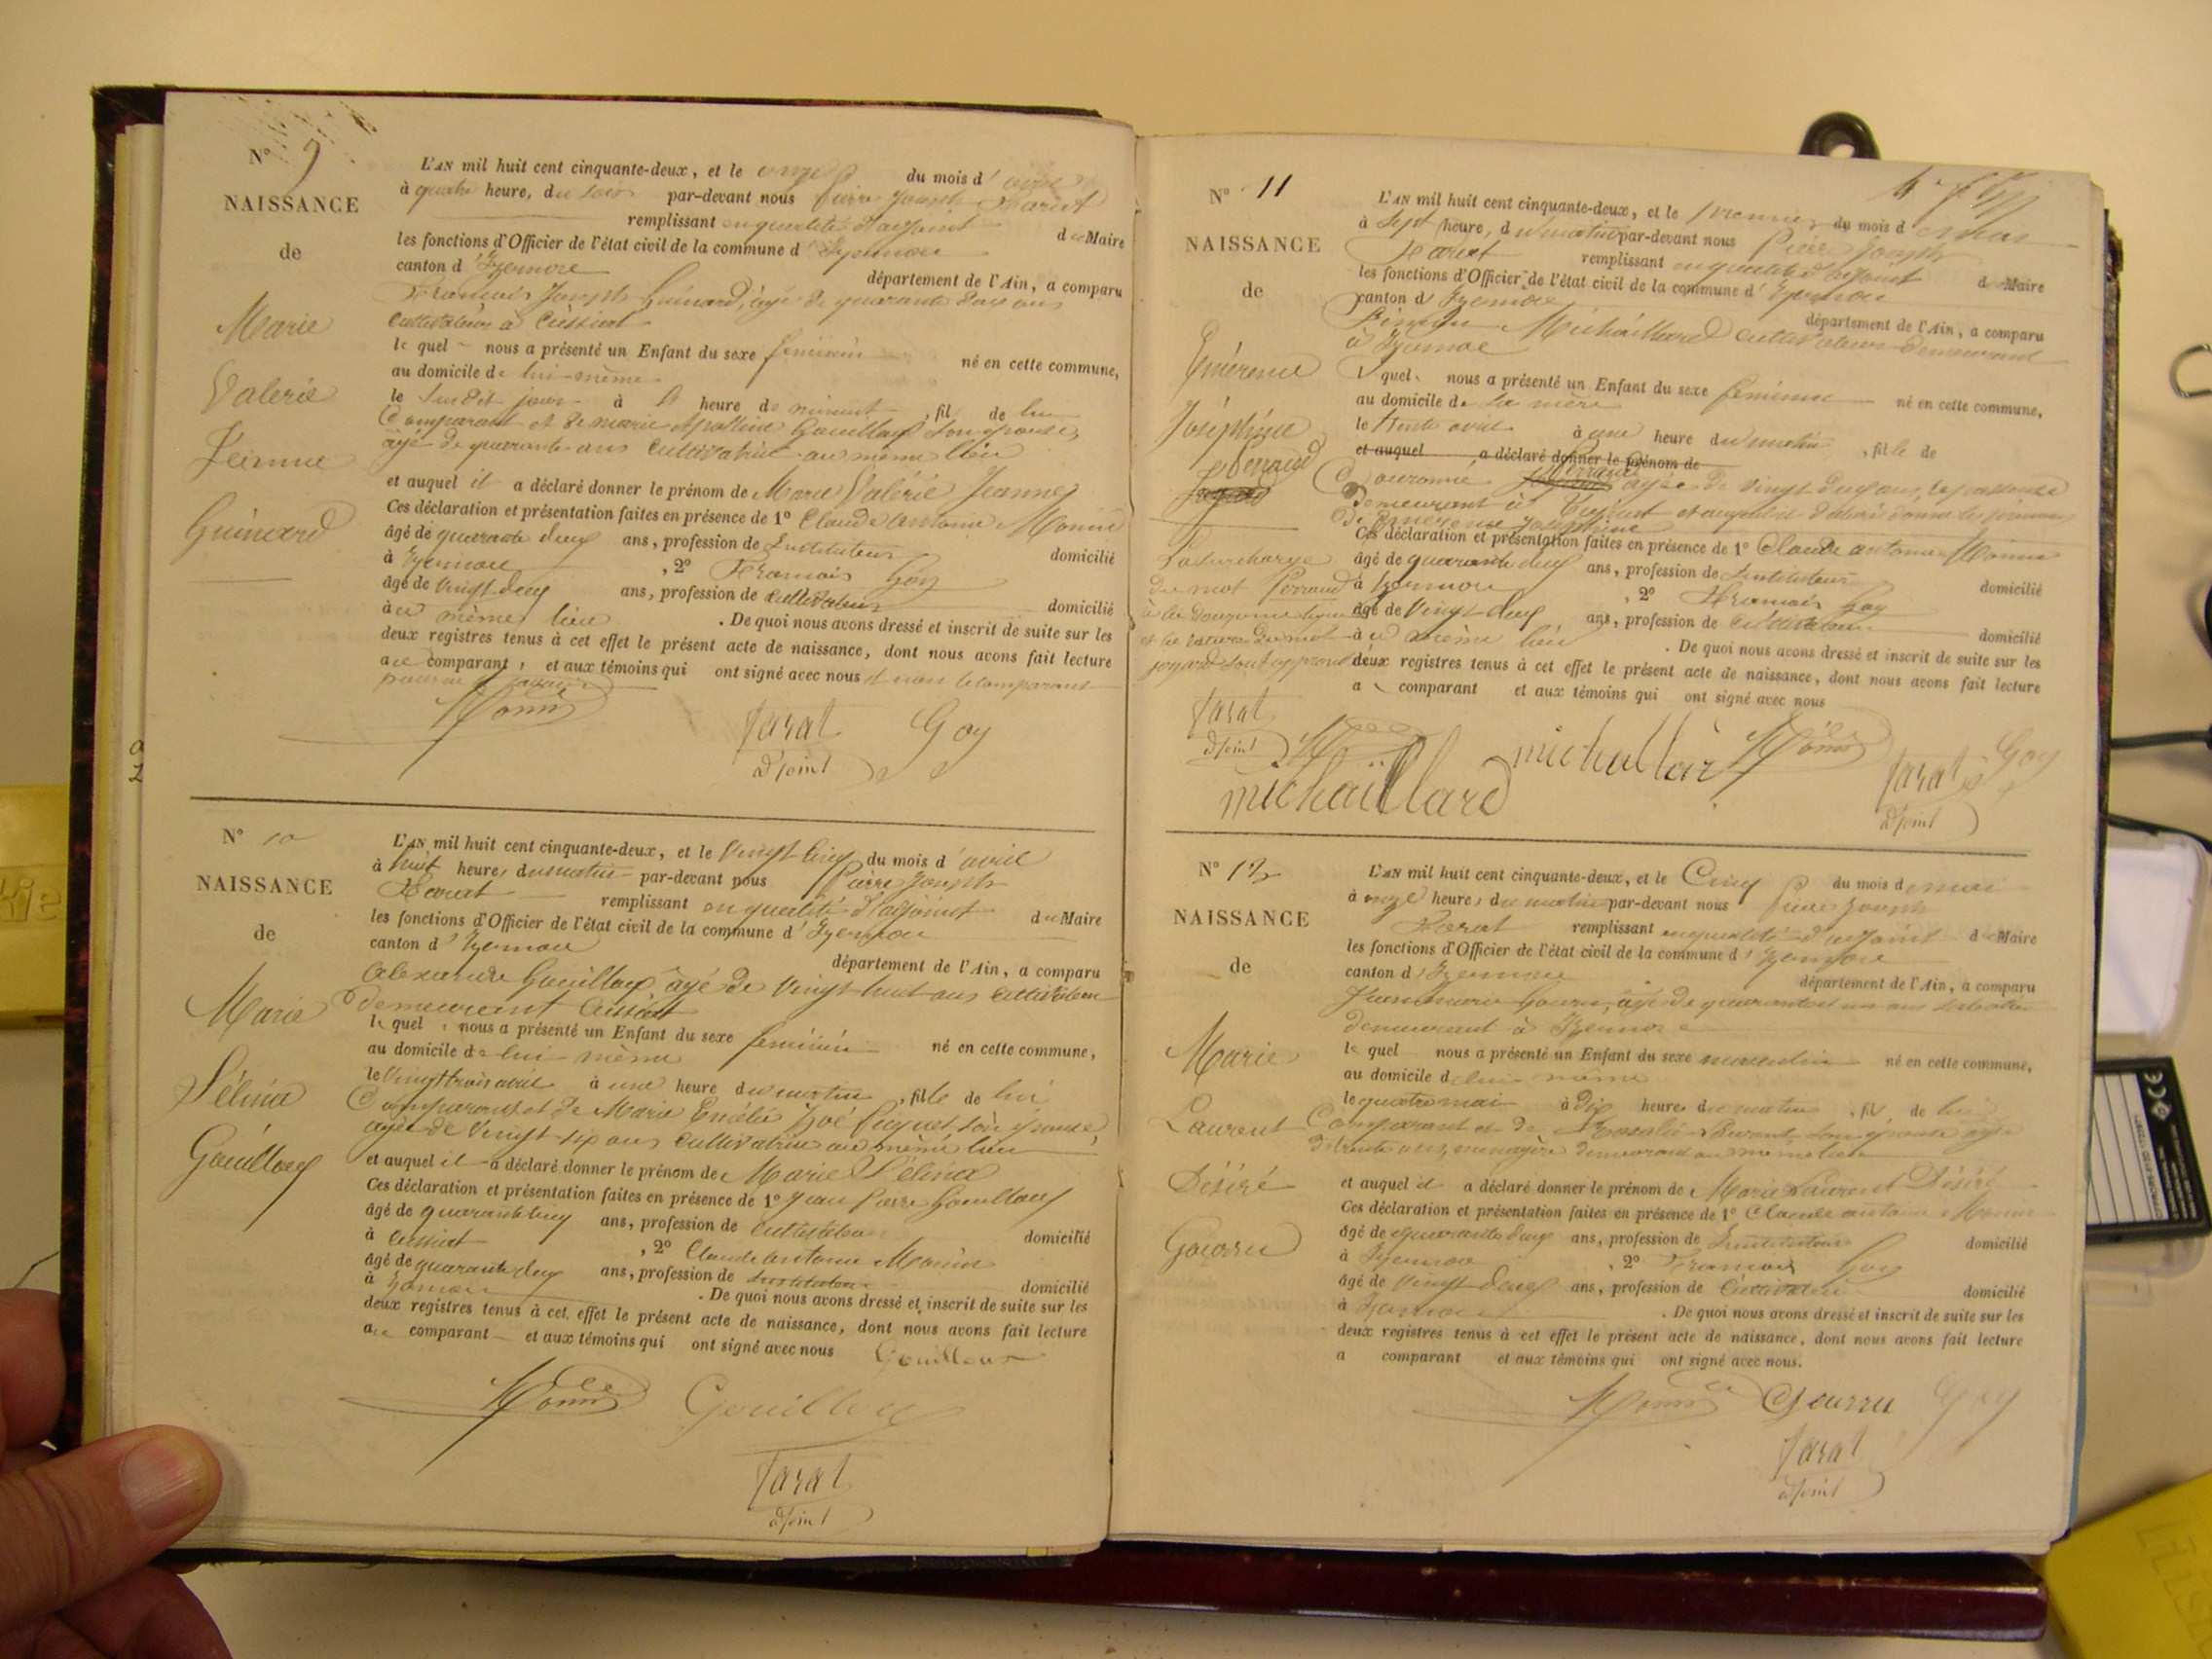 N° 9
NAISSANCE
de
Marie
Valérie
Jeanne
Guinard
L'AN mil huit cent cinquante-deux, et le onze du mois d'avril
à quatre heure, du soir par-devant nous Pierre Joseph
remplissant en qualité d'adjoint du Maire
les fonctions d'Officier de l'état civil de la commune d'Izernore
canton d'Izernore département de l'Ain, a comparu
François Joseph Guinard, âgé de quarante deux ans
cultivateur à Ceissiat
le quel nous a présenté un Enfant du sexe féminin né en cette commune,
au domicile de lui-même
le susdit jour à heure de minuit, fil de lui
Comparant et de marie Apolline Gouilloux son épouse,
âgé de quarante ans cultivatrice au même lieu
et auquel il a déclaré donner le prénom de Marie Valérie Jeanne
Ces déclaration et présentation faites en présence de 1° Claude antoine Monin
âgé de quarante deux ans, profession de Instituteur domicilié
à Izernore, 2° François Goy
âgé de vingt deux ans, profession de cultivateur domicilié
à ce même lieu. De quoi nous avons dressé et inscrit de suite sur les
deux registres tenus à cet effet le présent acte de naissance, dont nous avons fait lecture
au comparant, et aux témoins qui ont signé avec nous et non le comparant
Monin
Tarat Goy
adjoint
N° 10
NAISSANCE
de
Marie
Célina
Gouilloux
L'AN mil huit cent cinquante-deux, et le vingt cinq du mois d'avril
à huit heure, du matin par-devant nous Pierre Joseph
Tarat remplissant en qualité d'adjoint du Maire
les fonctions d'Officier de l'état civil de la commune d'Izernore
canton d'Izernore département de l'Ain, a comparu
Alexandre Gouilloux âgé de vingt huit ans cultivateur
demeurant Ceissiat
le quel nous a présenté un Enfant du sexe féminin né en cette commune,
au domicile de lui même
le vingt trois avril à une heure du matin, fille de lui
Comparant et de Marie Emélie Zoé son épouse,
âgée de vingt six ans cultivatrice au même lieu
et auquel il a déclaré donner le prénom de Marie Célina
Ces déclaration et présentation faites en présence de 1° Jean Pierre Gouilloux
âgé de quarante cinq ans, profession de cultivateur domicilié
à Ceissiat, 2° Claude antoine Monin
âgé de quarante deux ans, profession de Instituteur domicilié
à Izernore. De quoi nous avons dressé et inscrit de suite sur les
deux registres tenus à cet effet le présent acte de naissance, dont nous avons fait lecture
au comparant et aux témoins qui ont signé avec nous Gouilloux
Monin Gouilloux
Tarat
adjoint
N° 11
NAISSANCE
de
Emérence
Joséphine
Perraud
La surcharge
du mot Perraud
à la douzième ligne
et la rature du mot
joyard sont approuvé
Tarat
adjoint
L'AN mil huit cent cinquante-deux, et le premier du mois de mai
à sept heure, du matin par-devant nous Pierre Joseph
Tarat remplissant en qualité d'adjoint du Maire
les fonctions d'Officier de l'état civil de la commune d'Izernore
canton d'Izernore département de l'Ain, a comparu
Michaillard cultivateur demeurant
à Izernore
le quel nous a présenté un Enfant du sexe féminin né en cette commune,
au domicile de sa mère
le trente avril à une heure du matin, fille de
et auquel a déclaré donner le prénom de
Perraud âgée de vingt deux ans,
demeurant à et auquel il a déclaré donné les prénoms
de Emérence Joséphine
Ces déclaration et présentation faites en présence de 1° Claude antoine Monin
âgé de quarante deux ans, profession de Instituteur domicilié
à Izernore, 2° François Goy
âgé de vingt deux ans, profession de cultivateur domicilié
à ce même lieu. De quoi nous avons dressé et inscrit de suite sur les
deux registres tenus à cet effet le présent acte de naissance, dont nous avons fait lecture
au comparant et aux témoins qui ont signé avec nous
michaillard Monin Tarat Goy
michaillard adjoint
N° 12
NAISSANCE
de
Marie
Laurent
Désiré
Gourru
L'AN mil huit cent cinquante-deux, et le Cinq du mois de mai
à onze heure, du matin par-devant nous Pierre Joseph
Tarat remplissant en qualité d'adjoint du Maire
les fonctions d'Officier de l'état civil de la commune d'Izernore
canton d'Izernore département de l'Ain, a comparu
Jean marie Gourru, âgé de quarante et un ans
demeurant à Izernore
le quel nous a présenté un Enfant du sexe masculin né en cette commune,
au domicile de lui même
le quatre mai à dix heures du matin, fil de lui
Comparant et de Rosalie son épouse âgée
de trente ans, ménagère demeurant au même lieu
et auquel il a déclaré donner le prénom de Marie Laurent Désiré
Ces déclaration et présentation faites en présence de 1° Claude antoine Monin
âgé de quarante deux ans, profession de Instituteur domicilié
à Izernore, 2° François Goy
âgé de vingt deux ans, profession de Cultivateur domicilié
à Izernore. De quoi nous avons dressé et inscrit de suite sur les
deux registres tenus à cet effet le présent acte de naissance, dont nous avons fait lecture
a comparant et aux témoins qui ont signé avec nous.
Monin Gourru Goy
Tarat
adjoint